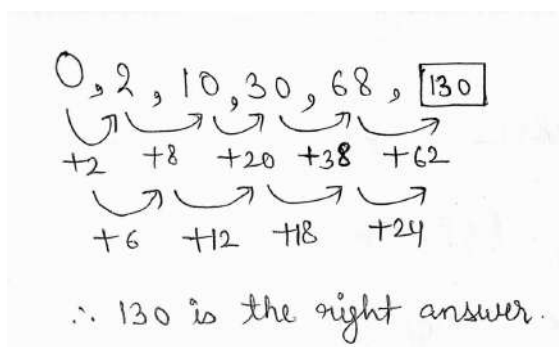 0, 2, 10, 30, 68, 130
+2 +8 +20 +38 +62
+6 +12 +18 +24
∴ 130 is the right answer.